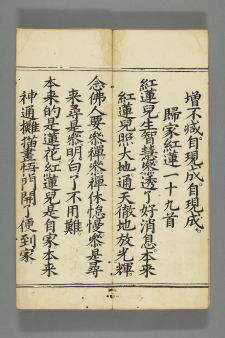 增不减自現成自現成。
歸家紅蓮一十九首
紅蓮兒生智慧叅透了好消息本來
紅蓮兒照大地通天徹地放光輝
念佛人要叅禪叅禪休憶慢叅是尋
來尋是叅明白了不用難
本來的是蓮花紅蓮兒是自家本來
神通難描畫悟門開了便到家